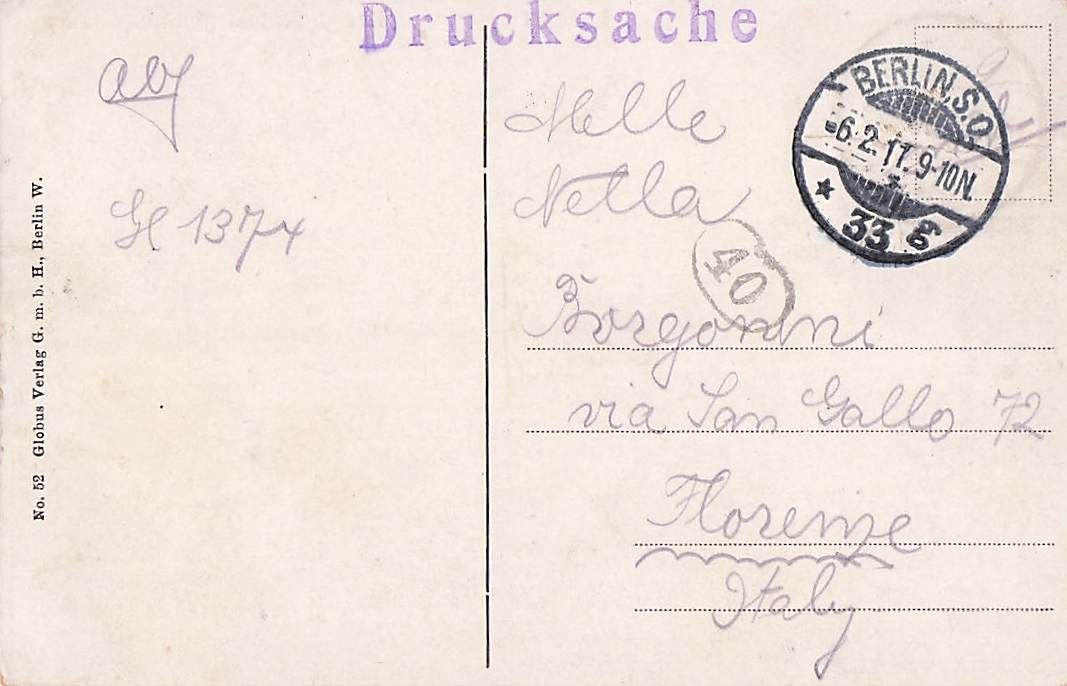 Drucksache
BERLIN.S.O.
-6.2.11.9-10N.
* 33 g
Melle
Nella
40
Borgonini
via San Gallo 72
Florenze
Italy
1374
No. 52 Globus Verlag G. m. b. H., Berlin W.